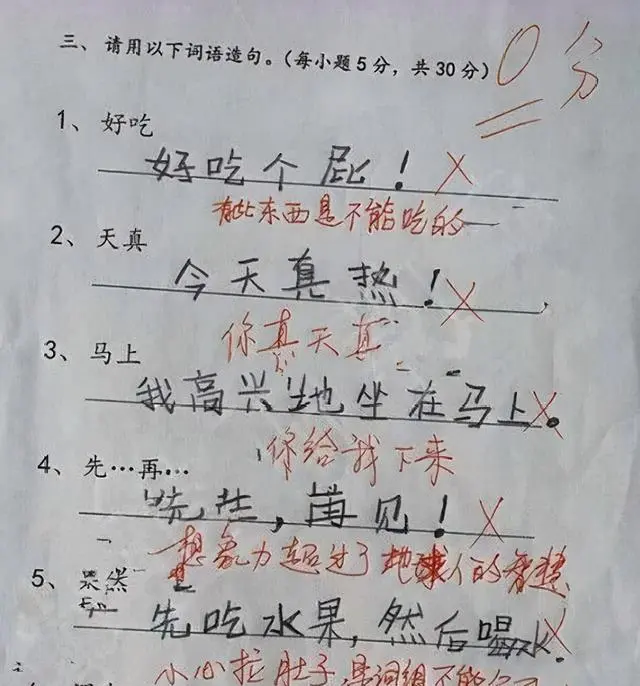 三、请用以下词语造句。（每小题5分，共30分） 0分
1、好吃
好吃个屁！
有些东西是不能吃的
2、天真
今天真热！
你真天真
3、马上
我高兴地坐在马上。
你给我下来
4、先…再…
先生，再见！
想象力超过了地球人的智慧
5、果然
先吃水果，然后喝水
小心拉肚子，是词组不能分开